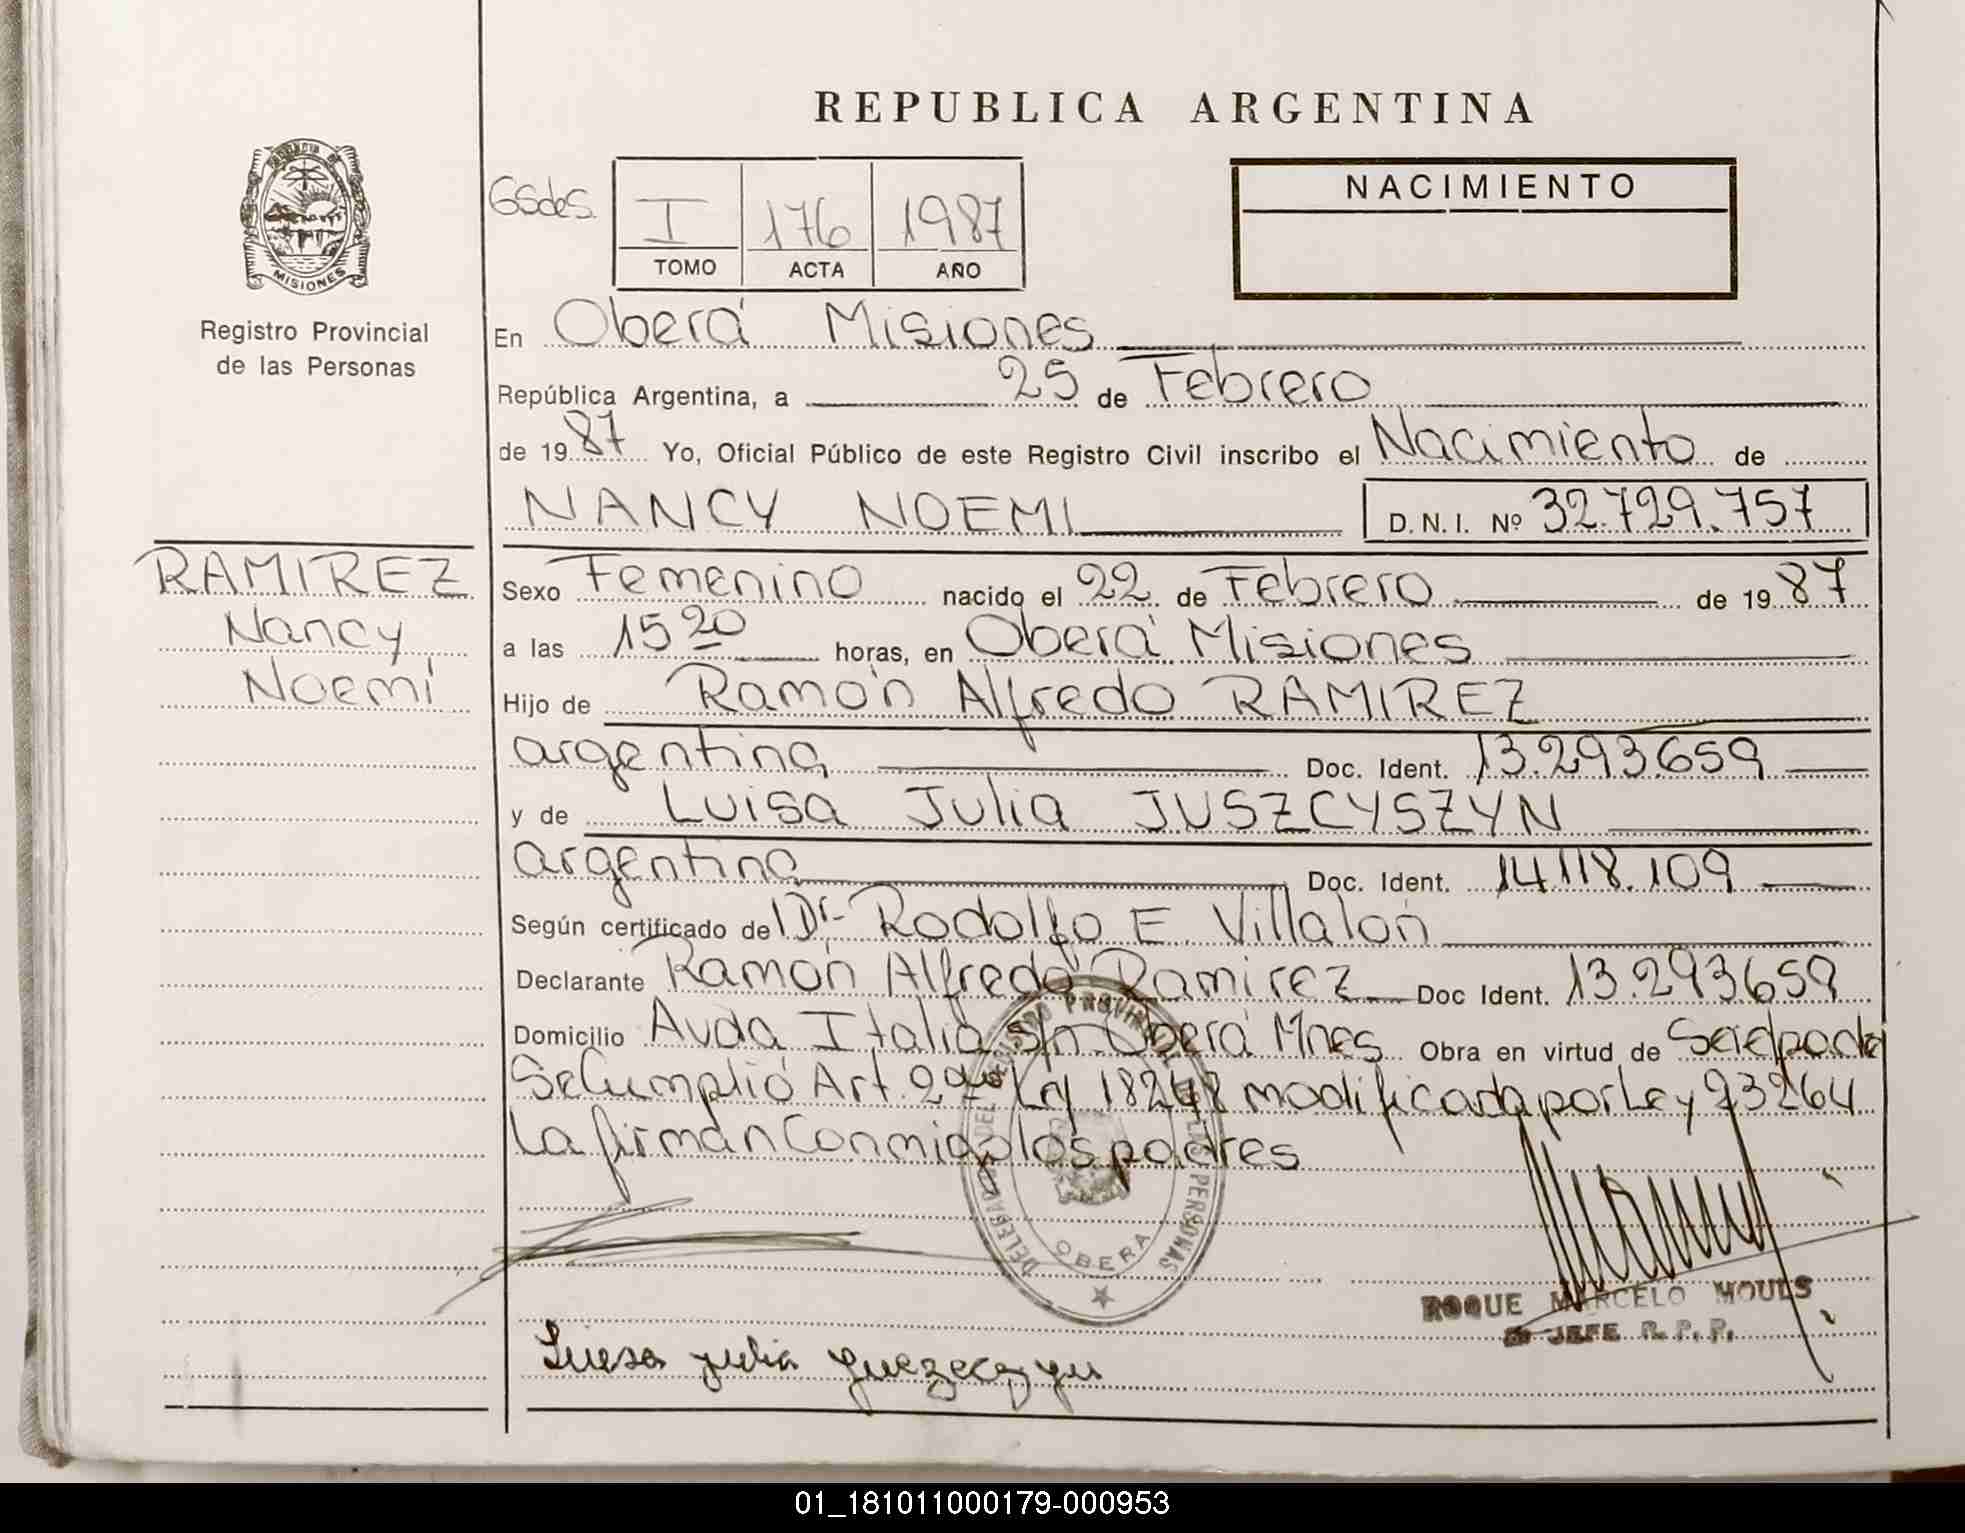 REPUBLICA ARGENTINA
NACIMIENTO
I 176 1987
TOMO ACTA AÑO
PROVINCIA DE
MISIONES
Registro Provincial
de las Personas
En Oberá Misiones
República Argentina, a 25 de Febrero
de 1987 Yo, Oficial Público de este Registro Civil inscribo el Nacimiento de
NANCY NOEMI D.N.I. Nº 32.729.757
RAMIREZ
Nancy
Noemí
Sexo Femenino nacido el 22 de Febrero de 1987
a las 15 20 horas, en Oberá Misiones
Hijo de Ramón Alfredo RAMIREZ
argentina Doc. Ident. 13.293.659
y de Luisa Julia JUSZCYSZYN
argentina Doc. Ident. 14.118.109
Según certificado de Dr. Rodolfo E. Villalón
Declarante Ramón Alfredo Ramirez Doc Ident. 13.293659
Domicilio Avda Italia s/n Oberá Mnes Obra en virtud de
Se Cumplió Art. 2do Ley 18248 modificada por Ley 23264
La firman Conmigo los padres
OBERA
ROQUE MARCELO MOULS
JEFE R.P.P.
Luisa Julia
01_181011000179-000953